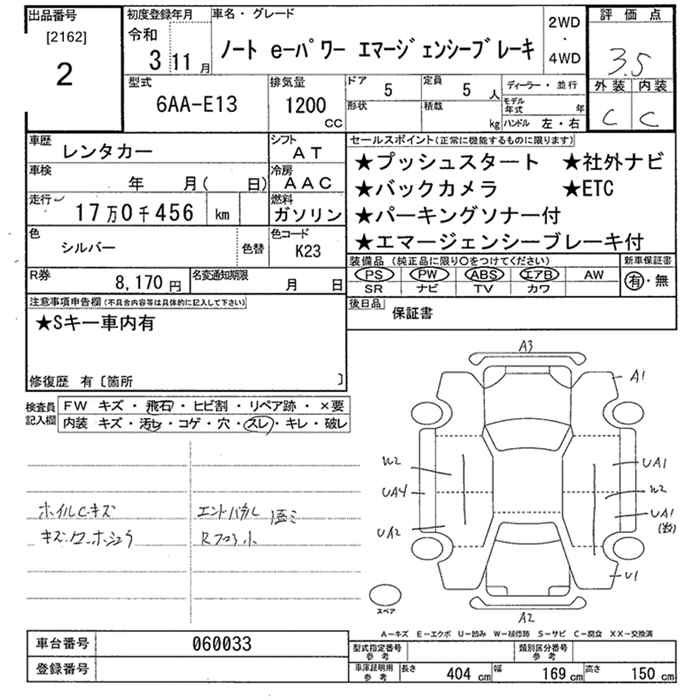 出品番号
[2162]
2
初度登録年月
令和
3 11月
車名・グレード
ノート e-パワー エマージェンシーブレーキ
2WD
・
4WD
評価点
3.5
外装 内装
C C
型式
6AA-E13
排気量
1200
CC
ドア
5
定員
5人
形状
積載
kg
ディーラー・並行
モデル年式 年
ハンドル 左・右
車歴
レンタカー
シフト
AT
車検
年 月( 日)
冷房
AAC
走行
17万0千456 km
燃料
ガソリン
色
シルバー
色替
色コード
K23
R券
8,170円
名変通知期限
月 日
セールスポイント(正常に機能するものに限ります)
★プッシュスタート ★社外ナビ
★バックカメラ ★ETC
★パーキングソナー付
★エマージェンシーブレーキ付
装備品(純正品に限り○をつけてください)
PS PW ABS エアB AW
SR ナビ TV カワ
新車保証書
有・無
後日品
保証書
注意事項申告欄(不具合内容等は具体的に記入して下さい)
★Sキー車内有
修復歴 有〔箇所 〕
検査員記入欄
FW キズ・飛石・ヒビ割・リペア跡・×要
内装 キズ・汚レ・コゲ・穴・スレ・キレ・破レ
ホイルCキズ
A3
A1
W2
UA4
UA2
UA1
W2
UA1
U1
A2
スペア
A-キズ E-エクボ U-凹み W-補修跡 S-サビ C-腐食 XX-交換済
車台番号
060033
登録番号
型式指定番号
参考
類別区分番号
参考
車庫証明用
参考
長さ 404 cm 幅 169 cm 高さ 150 cm